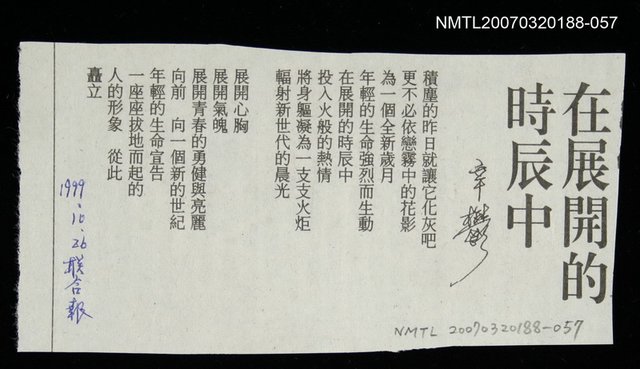 NMTL20070320188-057
在展開的
時辰中
辛鬱
積塵的昨日就讓它化灰吧
更不必依戀霧中的花影
為一個全新歲月
年輕的生命強烈而生動
在展開的時辰中
投入火般的熱情
將身軀凝為一支支火炬
輻射新世代的晨光
展開心胸
展開氣魄
展開青春的勇健與亮麗
向前　向一個新的世紀
年輕的生命宣告
一座座拔地而起的
人的形象　從此
矗立
1999.10.26 聯合報
NMTL 20070320188-057